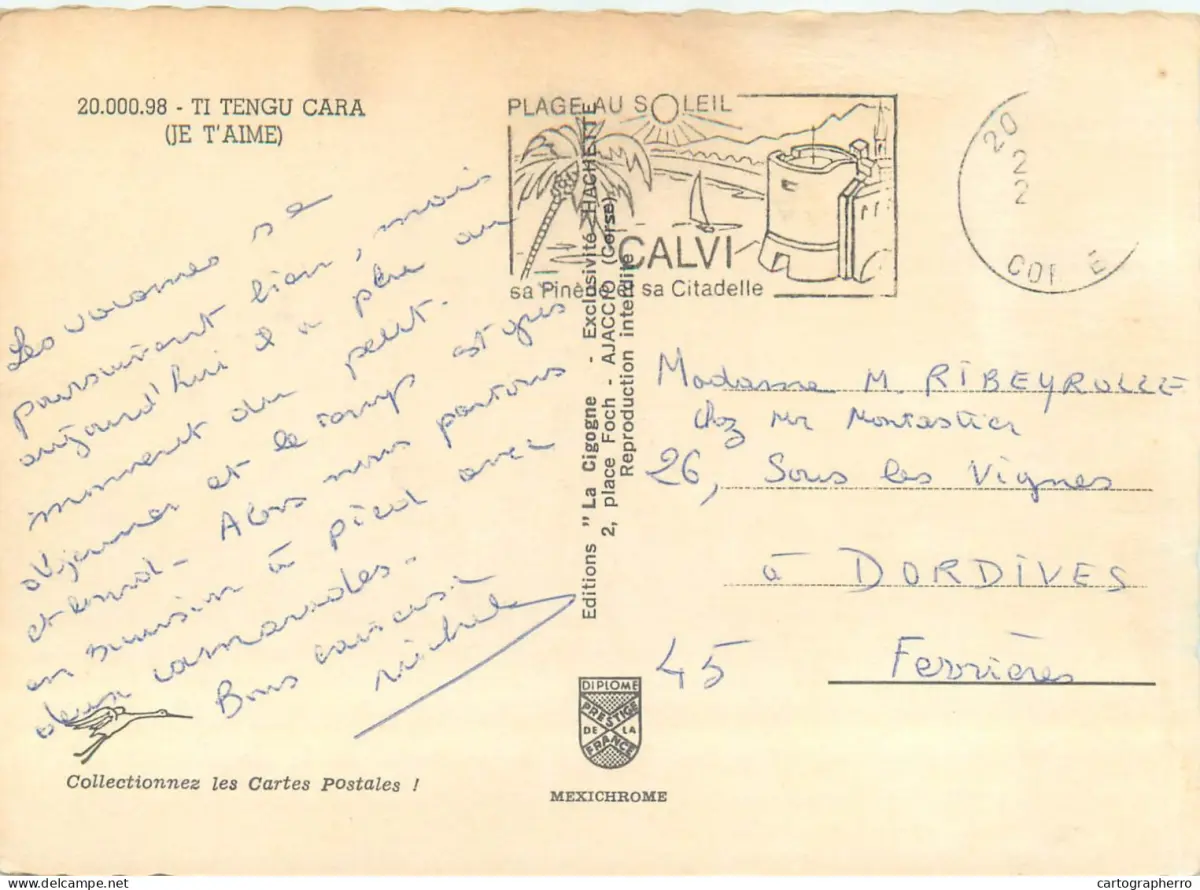 20.000.98 - TI TENGU CARA
(JE T'AIME)
Les vacances se
poursuivent bien, mais
aujourd'hui il a plu au
moment du petit.
déjeuner et le temps est gris
et lourd - Alors nous partons
en excursion à pied avec
deux camarades -
Bons baisers
Michel
Collectionnez les Cartes Postales !
PLAGE AU SOLEIL
CALVI
sa Pinède sa Citadelle
20
2
2
CORSE
Editions "La Cigogne - Exclusivité HACHETTE
2, place Foch - AJACCIO (Corse)
Reproduction interdite
Madame M. RIBEYROLLE
chez Mr Montastier
26, Sous les Vignes
à DORDIVES
45 Ferrières
DIPLOME
PRESTIGE
DE LA
FRANCE
MEXICHROME
delcampe.net
cartographerro